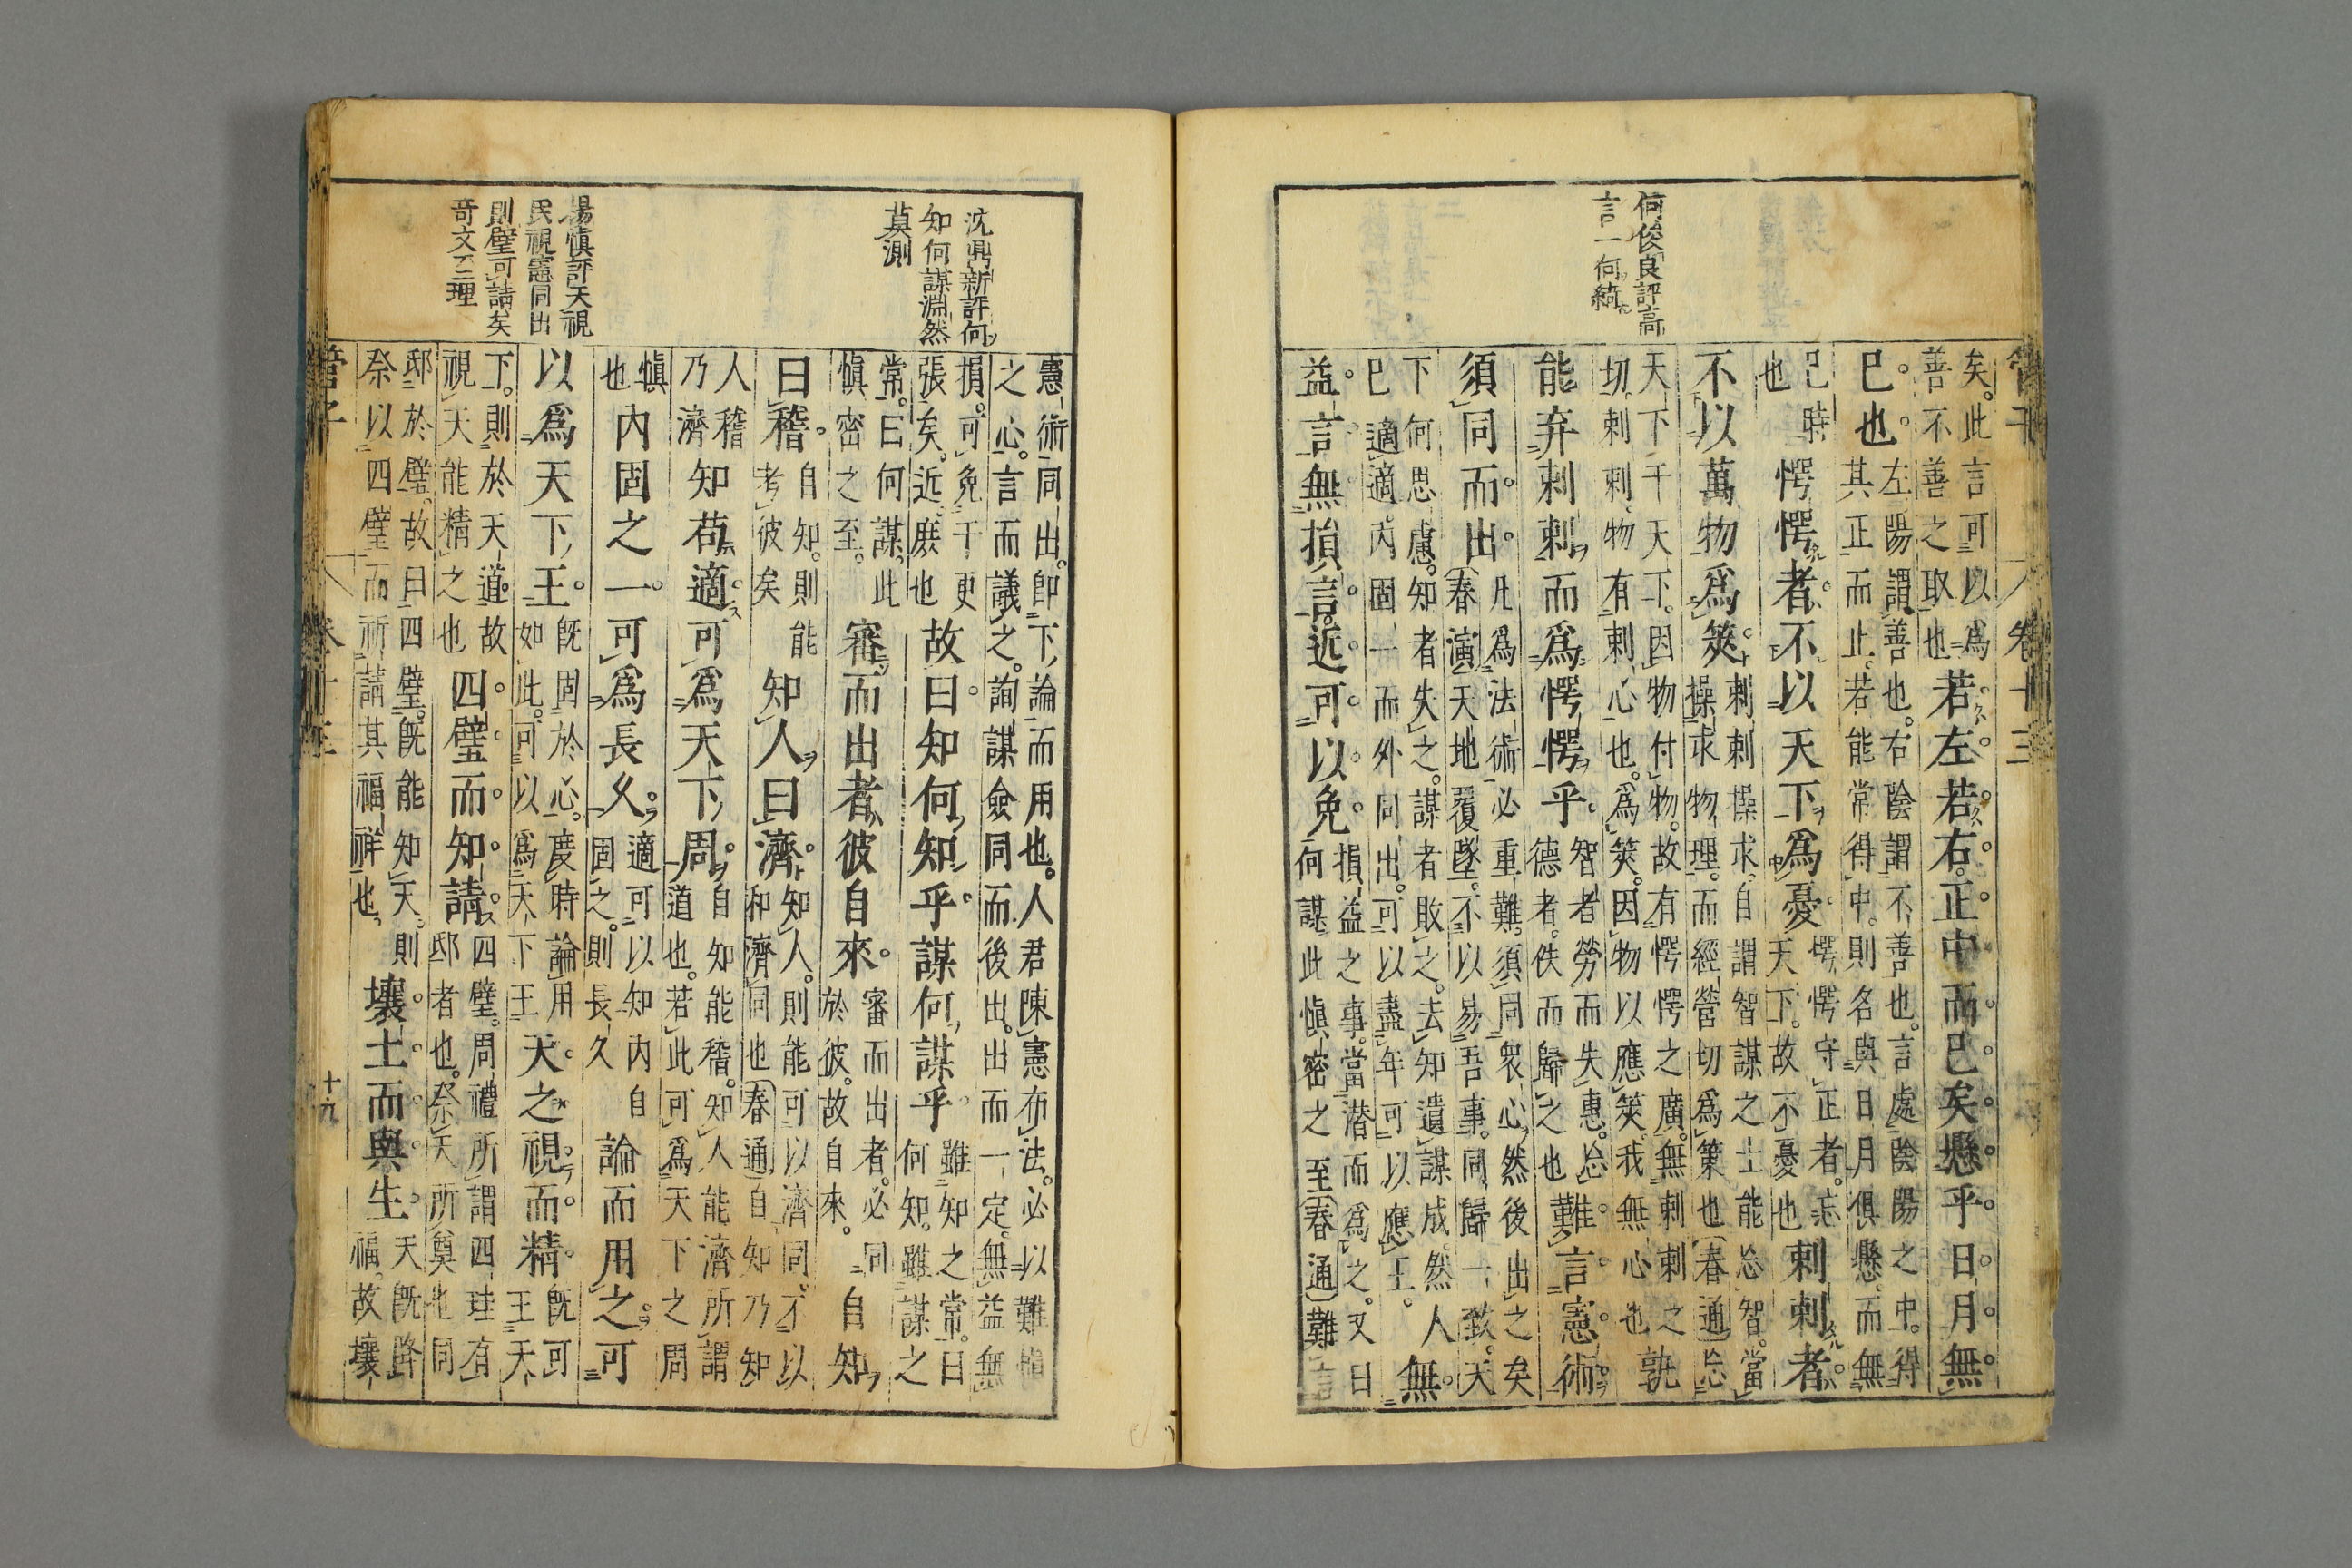 管子
卷十三
何俊良評高
言一何綺
矣此言可以爲
善不善之取也
若左若右正中而已矣懸乎日月無
已也
左陽謂善也右陰謂不善也言處陰陽之中得
其正而止若能常得中則名與日月俱懸而無
已時
也
愕愕者不以天下爲憂
愕愕守正者忘
天下故不憂也
剌剌者
不以萬物爲筴
剌剌操求自謂智謀之士能忩智當
操求物理而經營切爲策也春通忩
天下千天下因物付物故有愕愕之廣無剌剌之
切剌剌物有剌心也爲筴因物以應筴我無心也
孰
能弃剌剌而爲愕愕乎
智者勞而失惠忩
德者佚而歸之也
難言憲術
須同而出
凡爲法術必重難須同衆心然後出之矣
春演天地覆墜不以易吾事同歸一致天
下何思慮知者失之謀者敗之去知遺謀成然人
已適適丙固一而外同出可以盡年可以應王
無
益言無損言近可以免
損益之事當潜而爲之又曰
何謀此慎密之至春通難言
沈鼎新評何
知何謀淵然
莫測
楊慎評天視
民視憲同出
則璧可請矣
奇文至理
憲術同出卽下論而用也人君陳憲布法必以難慎
之心言而議之詢謀僉同而後出出而一定無益無
損可免干更
張矣近庶也
故曰知何知乎謀何謀乎
雖知之常曰
何知雖謀之
常曰何謀此
慎密之至
審而出者彼自來
審而出者必同
於彼故自來
自知
曰稽
自知則能
考彼矣
知人曰濟
知人則能可以濟同才以
和濟同也春通自知乃知
人稽
乃濟
知苟適可爲天下周
自知能稽知人能濟所謂
道也若此可爲天下之周
慎
也
內固之一可爲長久
適可以知內自
固之則長久
論而用之可
以爲天下王
旣固於心度時論用
如此可以爲天下王
天之視而精
旣可
王天
下則於天道故
視天能精之也
四璧而知請
四璧周禮所謂四珪有
邸者也祭天所奠也同
邸於璧故曰四璧旣能知天則
祭以四璧而祈請其福祥也
壤土而與生
天旣降
福故壤
管子
卷十三
十九